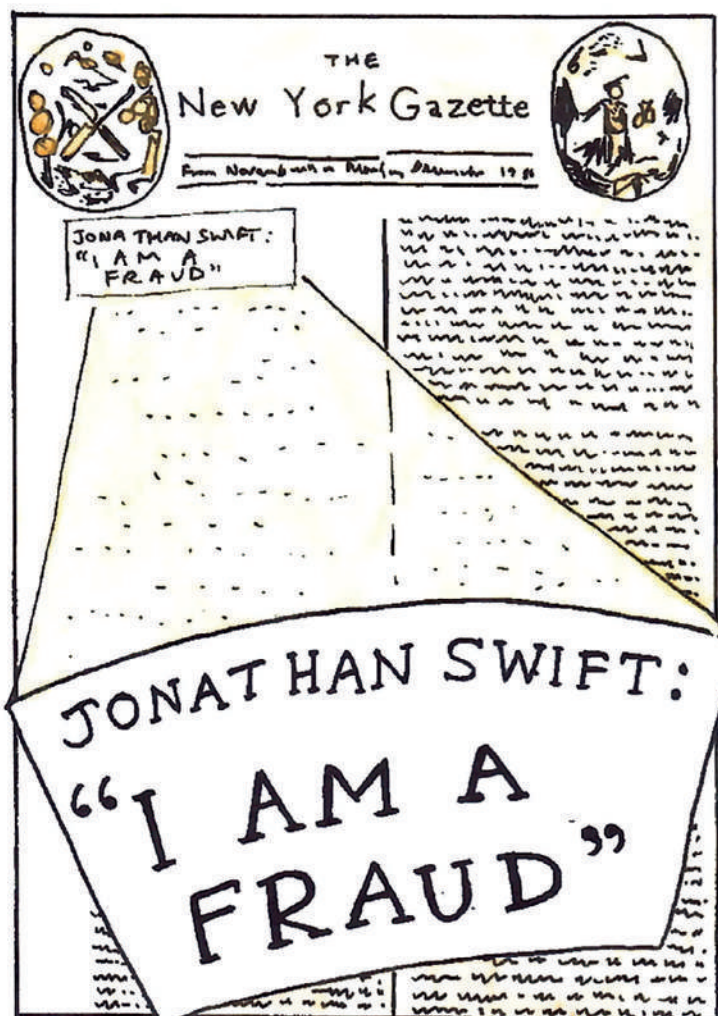 THE
New York Gazette
From
JONATHAN SWIFT:
"I AM A
FRAUD"
JONATHAN SWIFT:
"I AM A
FRAUD"